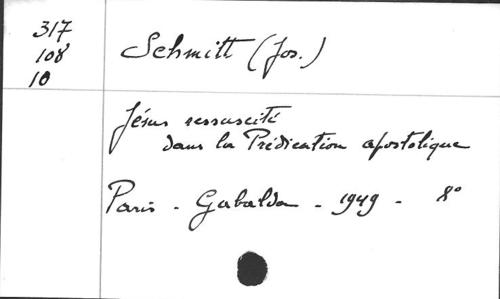 317
108
10
Schmitt (Jos.)
Jésus ressuscité
dans la Prédication apostolique
Paris - Gabalda - 1949 - 8°